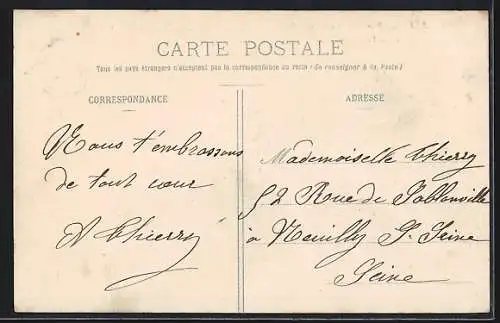 CARTE POSTALE
Tous les pays étrangers n'acceptent pas la correspondance au recto (Se renseigner à la Poste)
CORRESPONDANCE
ADRESSE
Nous t'embrassons
de tout cœur
A Thierry
Mademoiselle Thierry
52 Rue de Sablonville
à Neuilly S. Seine
Seine